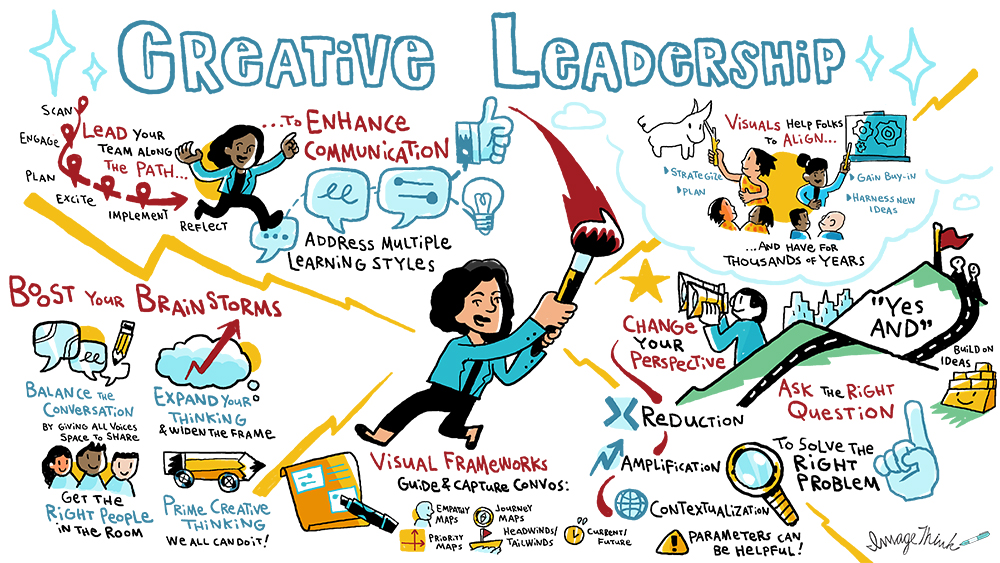 CREATIVE LEADERSHIP
SCAN
ENGAGE
PLAN
EXCITE
IMPLEMENT
REFLECT
LEAD YOUR
TEAM ALONG
THE PATH...
...TO ENHANCE
COMMUNICATION
ADDRESS MULTIPLE
LEARNING STYLES
VISUALS HELP FOLKS
TO ALIGN...
STRATEGIZE
PLAN
GAIN BUY-IN
HARNESS NEW
IDEAS
...AND HAVE FOR
THOUSANDS OF YEARS
BOOST YOUR BRAINSTORMS
BALANCE THE
CONVERSATION
BY GIVING ALL VOICES
SPACE TO SHARE
EXPAND YOUR
THINKING
& WIDEN THE FRAME
GET THE
RIGHT PEOPLE
IN THE ROOM
PRIME CREATIVE
THINKING
WE ALL CAN DO IT!
VISUAL FRAMEWORKS
GUIDE & CAPTURE CONVOS:
EMPATHY
MAPS
JOURNEY
MAPS
PRIORITY
MAPS
HEADWINDS/
TAILWINDS
CURRENT/
FUTURE
CHANGE
YOUR
PERSPECTIVE
REDUCTION
AMPLIFICATION
CONTEXTUALIZATION
PARAMETERS CAN
BE HELPFUL!
"YES
AND"
BUILD ON
IDEAS
ASK THE RIGHT
QUESTION
TO SOLVE THE
RIGHT
PROBLEM
ImageThink